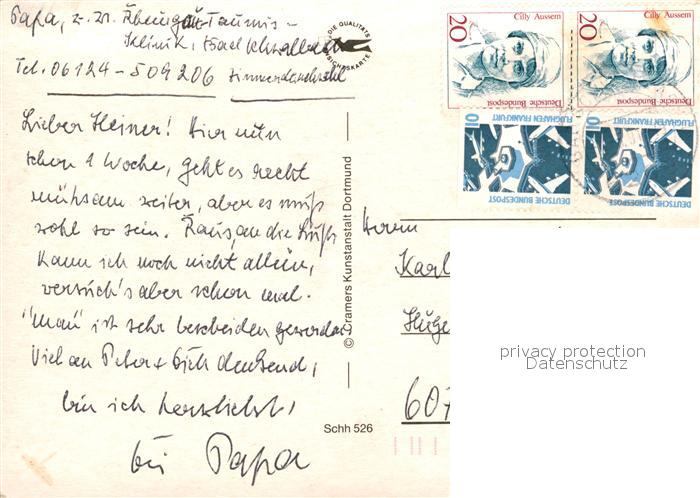 Papa, z. Zt.
Klinik, Bad Schwalbach
Tel. 06124-509206
DIE QUALITÄTS
ANSICHTSKARTE
Lieber Heiner! Hier nun
schon 1 Woche, geht es recht
mühsam weiter, aber es muß
wohl so sein. Raus, an die Luft
kann ich noch nicht allein,
versuch's aber schon mal.
"Man" ist sehr bescheiden geworden
Viel an Peter + Dich denkend,
bin ich herzlichst,
Papa
© Cramers Kunstanstalt Dortmund
Schh 526
20 Cilly Aussem
Deutsche Bundespost
20 Cilly Aussem
Deutsche Bundespost
10 FLUGHAFEN FRANKFURT
DEUTSCHE BUNDESPOST
10 FLUGHAFEN FRANKFURT
DEUTSCHE BUNDESPOST
Herrn
Karl
Hüge
607
privacy protection
Datenschutz